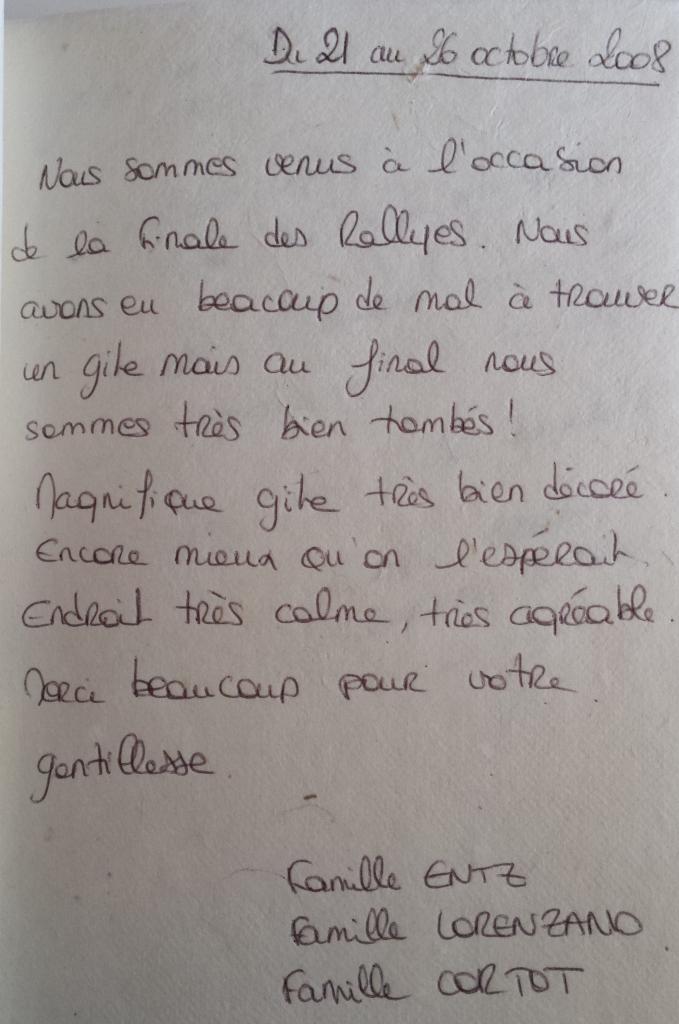 Du 21 au 26 octobre 2008
Nous sommes venus à l'occasion
de la finale des Rallyes. Nous
avons eu beacoup de mal à trouver
un gite mais au final nous
sommes très bien tombés !
Magnifique gite très bien décoré.
Encore mieux qu'on l'espérait.
Endroit très calme, très agréable.
Merci beaucoup pour votre
gentillesse.
Famille ENTZ
Famille LORENZANO
Famille CORTOT